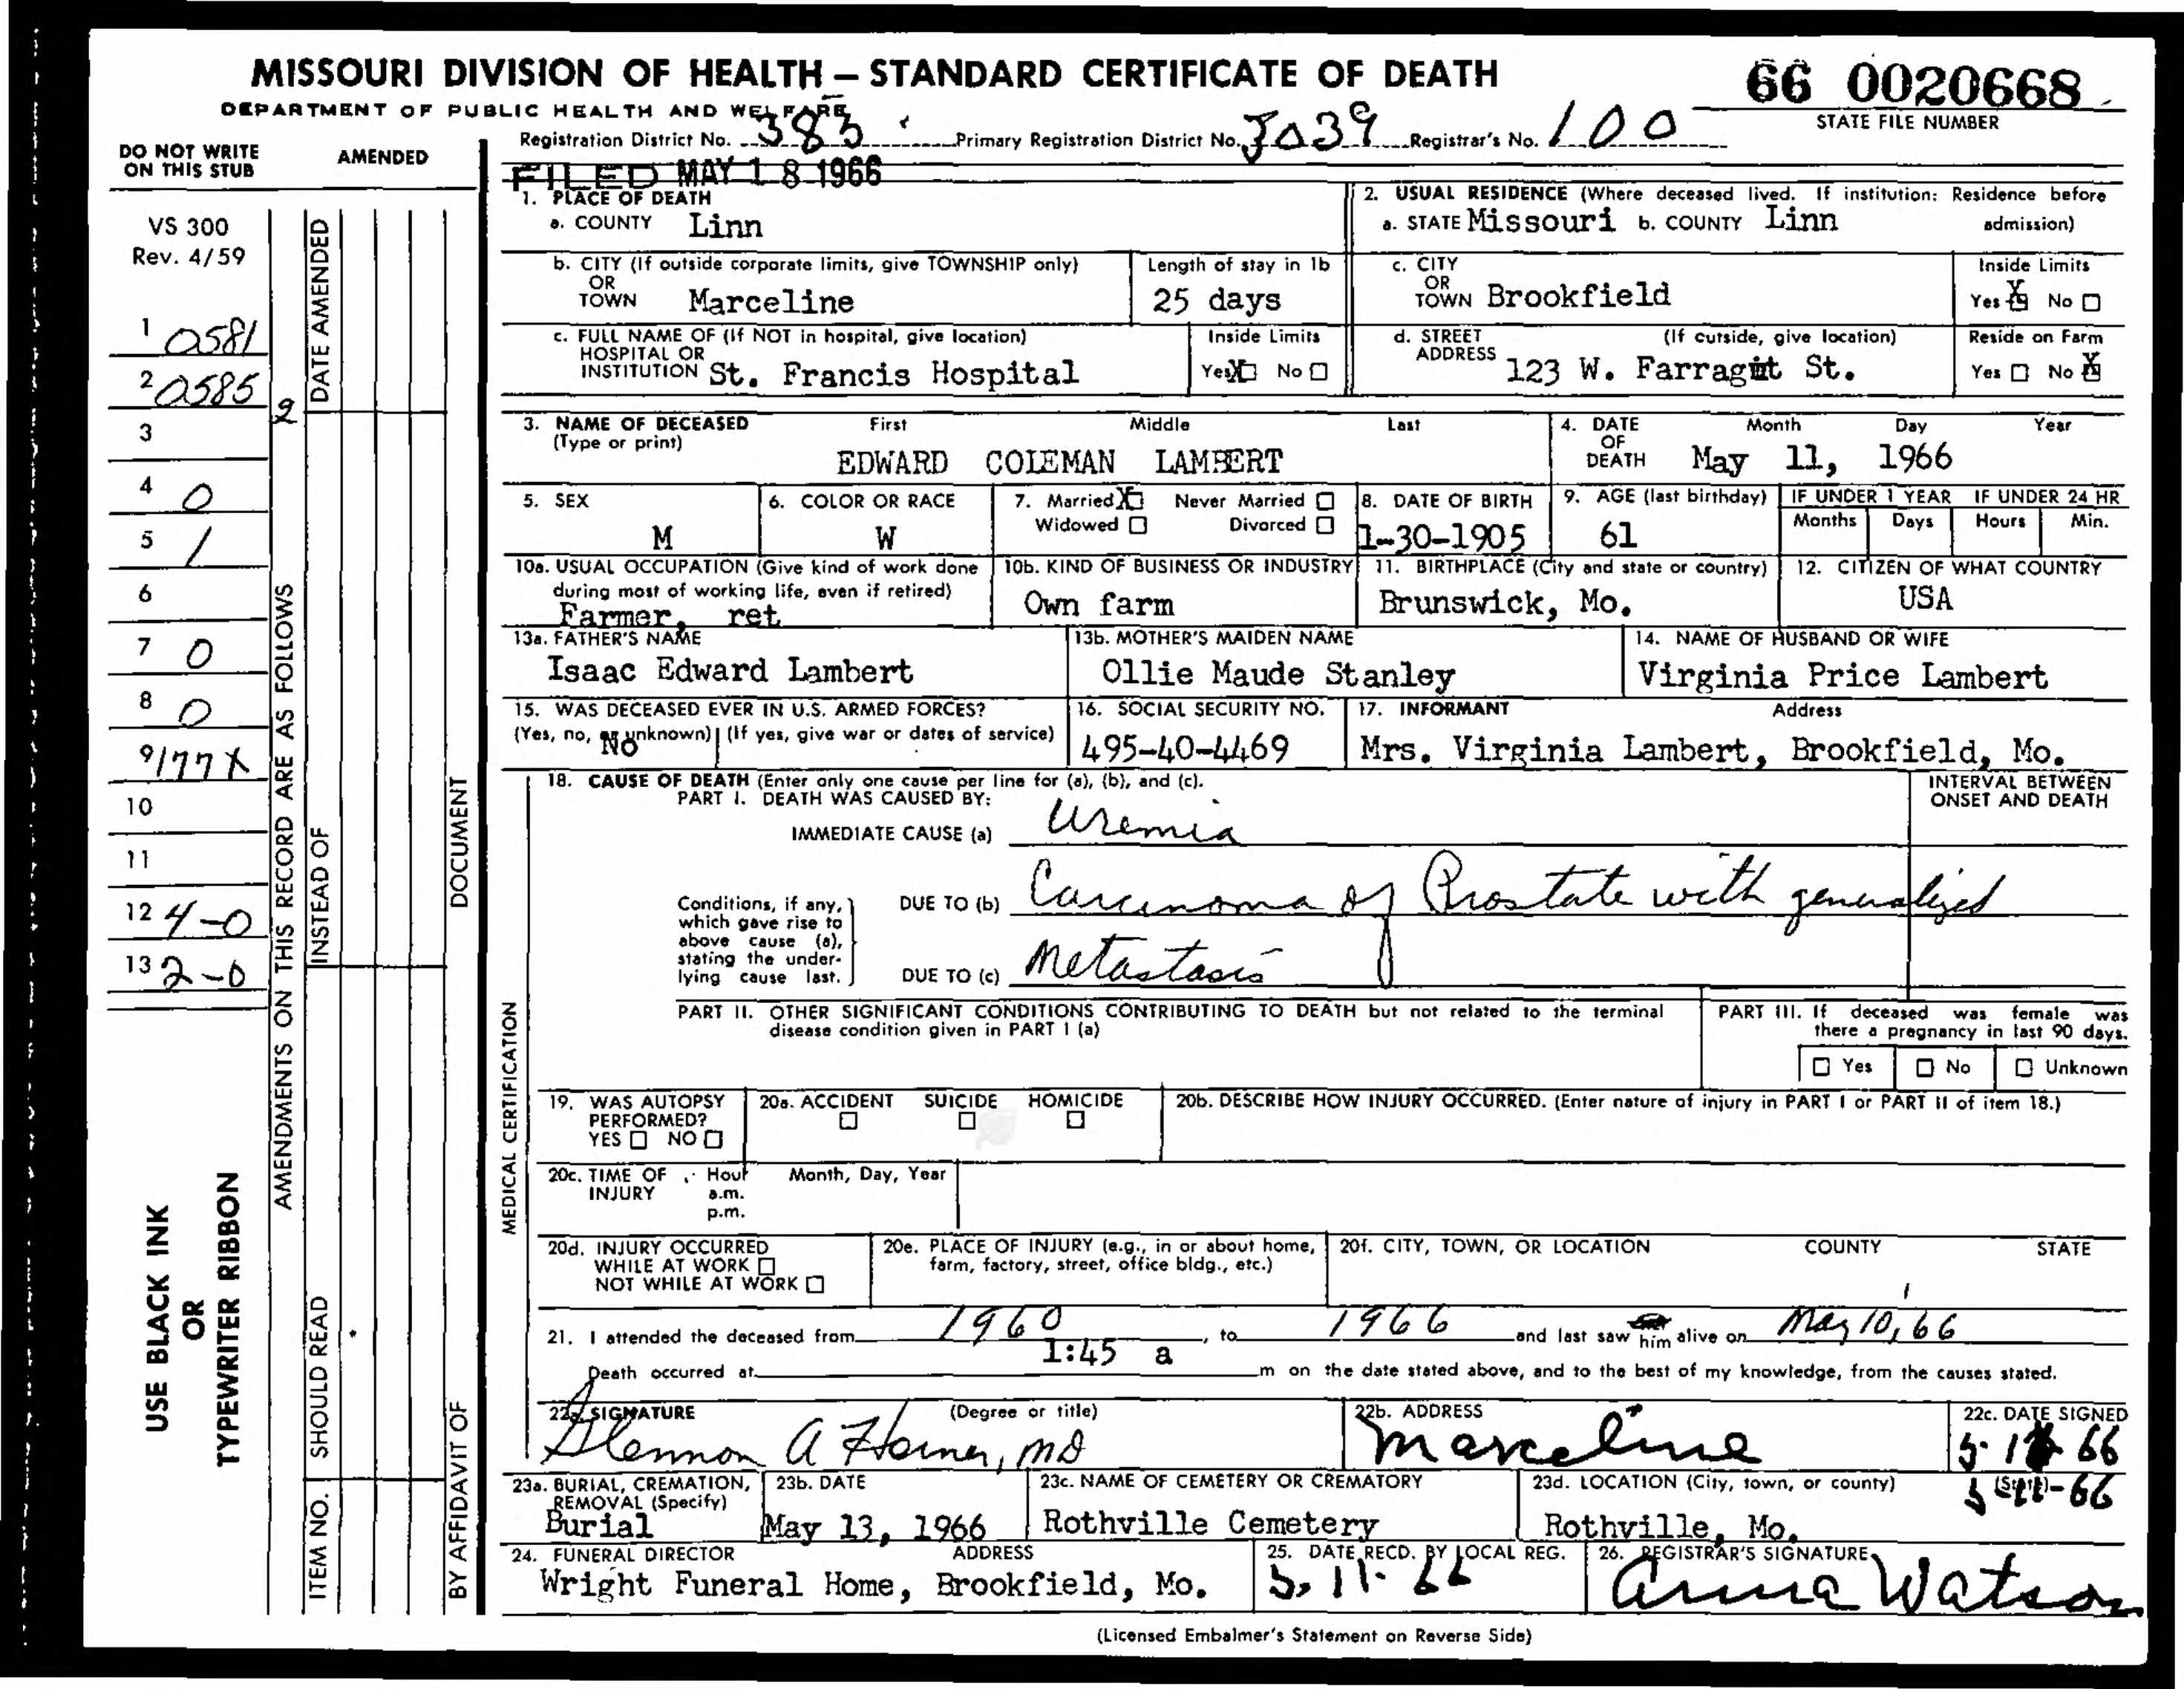 MISSOURI DIVISION OF HEALTH – STANDARD CERTIFICATE OF DEATH
66 0020668
DEPARTMENT OF PUBLIC HEALTH AND WELFARE
STATE FILE NUMBER
Registration District No. 383 Primary Registration District No. 3039 Registrar's No. 100
DO NOT WRITE ON THIS STUB
AMENDED
FILED MAY 18 1966
VS 300
Rev. 4/59
1 0581
2 0585
3
4 0
5 1
6
7 0
8 0
9 177X
10
11
12 4-0
13 2-0
USE BLACK INK
OR
TYPEWRITER RIBBON
AMENDMENTS ON THIS RECORD ARE AS FOLLOWS
2
DATE AMENDED
INSTEAD OF
SHOULD READ
ITEM NO.
DOCUMENT
BY AFFIDAVIT OF
MEDICAL CERTIFICATION
1. PLACE OF DEATH
a. COUNTY Linn
2. USUAL RESIDENCE (Where deceased lived. If institution: Residence before admission)
a. STATE Missouri b. COUNTY Linn
b. CITY (If outside corporate limits, give TOWNSHIP only)
OR
TOWN Marceline
Length of stay in 1b
25 days
c. CITY
OR
TOWN Brookfield
Inside Limits
Yes X No
c. FULL NAME OF (If NOT in hospital, give location)
HOSPITAL OR
INSTITUTION St. Francis Hospital
Inside Limits
Yes X No
d. STREET (If outside, give location)
ADDRESS 123 W. Farragut St.
Reside on Farm
Yes No X
3. NAME OF DECEASED First Middle Last
(Type or print)
EDWARD COLEMAN LAMBERT
4. DATE OF DEATH Month Day Year
May 11, 1966
5. SEX
M
6. COLOR OR RACE
W
7. Married X Never Married
Widowed Divorced
8. DATE OF BIRTH
1-30-1905
9. AGE (last birthday)
61
IF UNDER 1 YEAR IF UNDER 24 HR
Months Days Hours Min.
10a. USUAL OCCUPATION (Give kind of work done
during most of working life, even if retired)
Farmer, ret
10b. KIND OF BUSINESS OR INDUSTRY
Own farm
11. BIRTHPLACE (City and state or country)
Brunswick, Mo.
12. CITIZEN OF WHAT COUNTRY
USA
13a. FATHER'S NAME
Isaac Edward Lambert
13b. MOTHER'S MAIDEN NAME
Ollie Maude Stanley
14. NAME OF HUSBAND OR WIFE
Virginia Price Lambert
15. WAS DECEASED EVER IN U.S. ARMED FORCES?
(Yes, no, or unknown) (If yes, give war or dates of service)
No
16. SOCIAL SECURITY NO.
495-40-4469
17. INFORMANT Address
Mrs. Virginia Lambert, Brookfield, Mo.
18. CAUSE OF DEATH (Enter only one cause per line for (a), (b), and (c).
PART I. DEATH WAS CAUSED BY:
INTERVAL BETWEEN
ONSET AND DEATH
IMMEDIATE CAUSE (a) Uremia
Conditions, if any,
which gave rise to
above cause (a),
stating the under-
lying cause last.
DUE TO (b) Carcinoma of Prostate with generalized
DUE TO (c) Metastasis
PART II. OTHER SIGNIFICANT CONDITIONS CONTRIBUTING TO DEATH but not related to the terminal
disease condition given in PART I (a)
PART III. If deceased was female was
there a pregnancy in last 90 days.
Yes No Unknown
19. WAS AUTOPSY
PERFORMED?
YES NO
20a. ACCIDENT SUICIDE HOMICIDE
20b. DESCRIBE HOW INJURY OCCURRED. (Enter nature of injury in PART I or PART II of item 18.)
20c. TIME OF INJURY Hour a.m. p.m. Month, Day, Year
20d. INJURY OCCURRED
WHILE AT WORK
NOT WHILE AT WORK
20e. PLACE OF INJURY (e.g., in or about home,
farm, factory, street, office bldg., etc.)
20f. CITY, TOWN, OR LOCATION COUNTY STATE
21. I attended the deceased from 1960, to 1966 and last saw him alive on May 10, 66
Death occurred at 1:45 a m on the date stated above, and to the best of my knowledge, from the causes stated.
22a. SIGNATURE (Degree or title)
Glennon A Horner, MD
22b. ADDRESS
Marceline
22c. DATE SIGNED
5-11-66
23a. BURIAL, CREMATION,
REMOVAL (Specify)
Burial
23b. DATE
May 13, 1966
23c. NAME OF CEMETERY OR CREMATORY
Rothville Cemetery
23d. LOCATION (City, town, or county) (State)
Rothville, Mo.
24. FUNERAL DIRECTOR ADDRESS
Wright Funeral Home, Brookfield, Mo.
25. DATE RECD. BY LOCAL REG.
5-11-66
26. REGISTRAR'S SIGNATURE
Anna Watson
(Licensed Embalmer's Statement on Reverse Side)